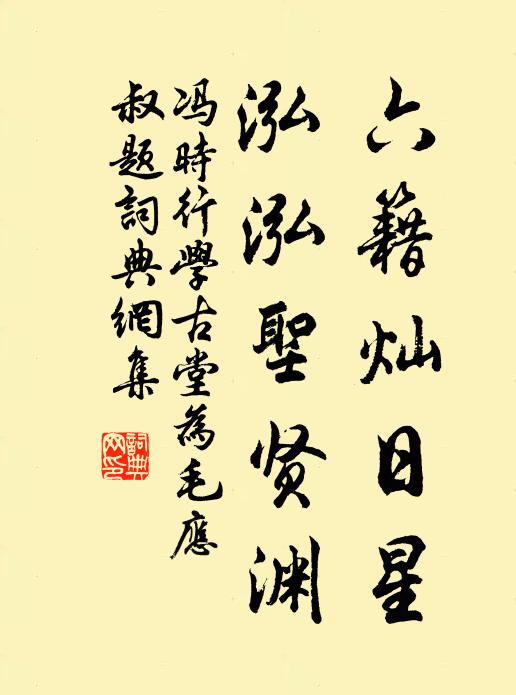 六籍灿日星
泓泓聖贤渊
冯時行學古堂為毛應
叔題詞典網集
詞典网印